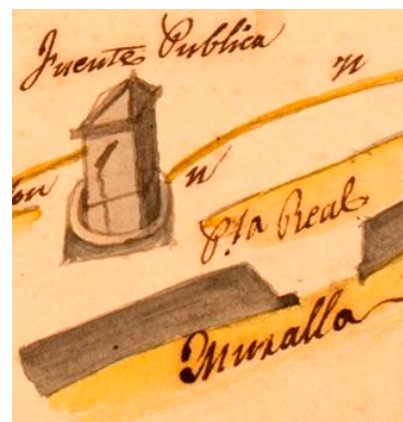 Fuente Publica
n
n
P.ta Real
Muralla